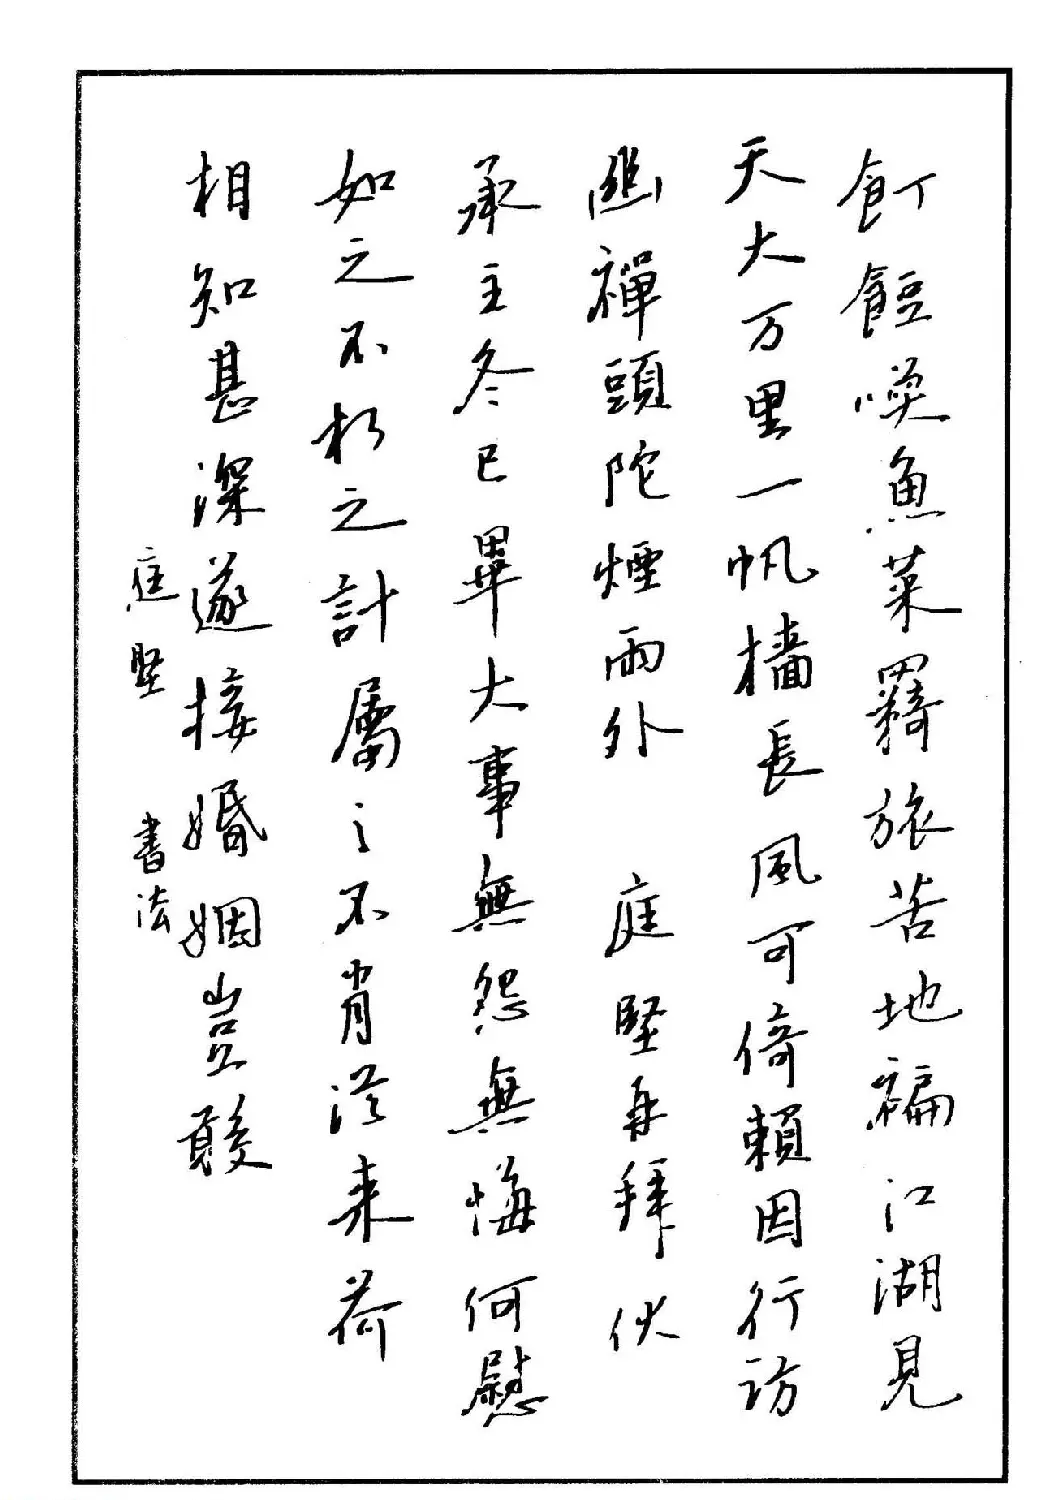 飣餖喚魚菜羇旅苦地褊江湖見
天大万里一帆檣長風可倚賴因行訪
幽禪頭陀煙雨外 庭堅再拜伏
承主冬已畢大事無怨無悔何慰
如之不朽之計屬之不肖從来荷
相知甚深遂接婚姻豈敢
庭堅 書法